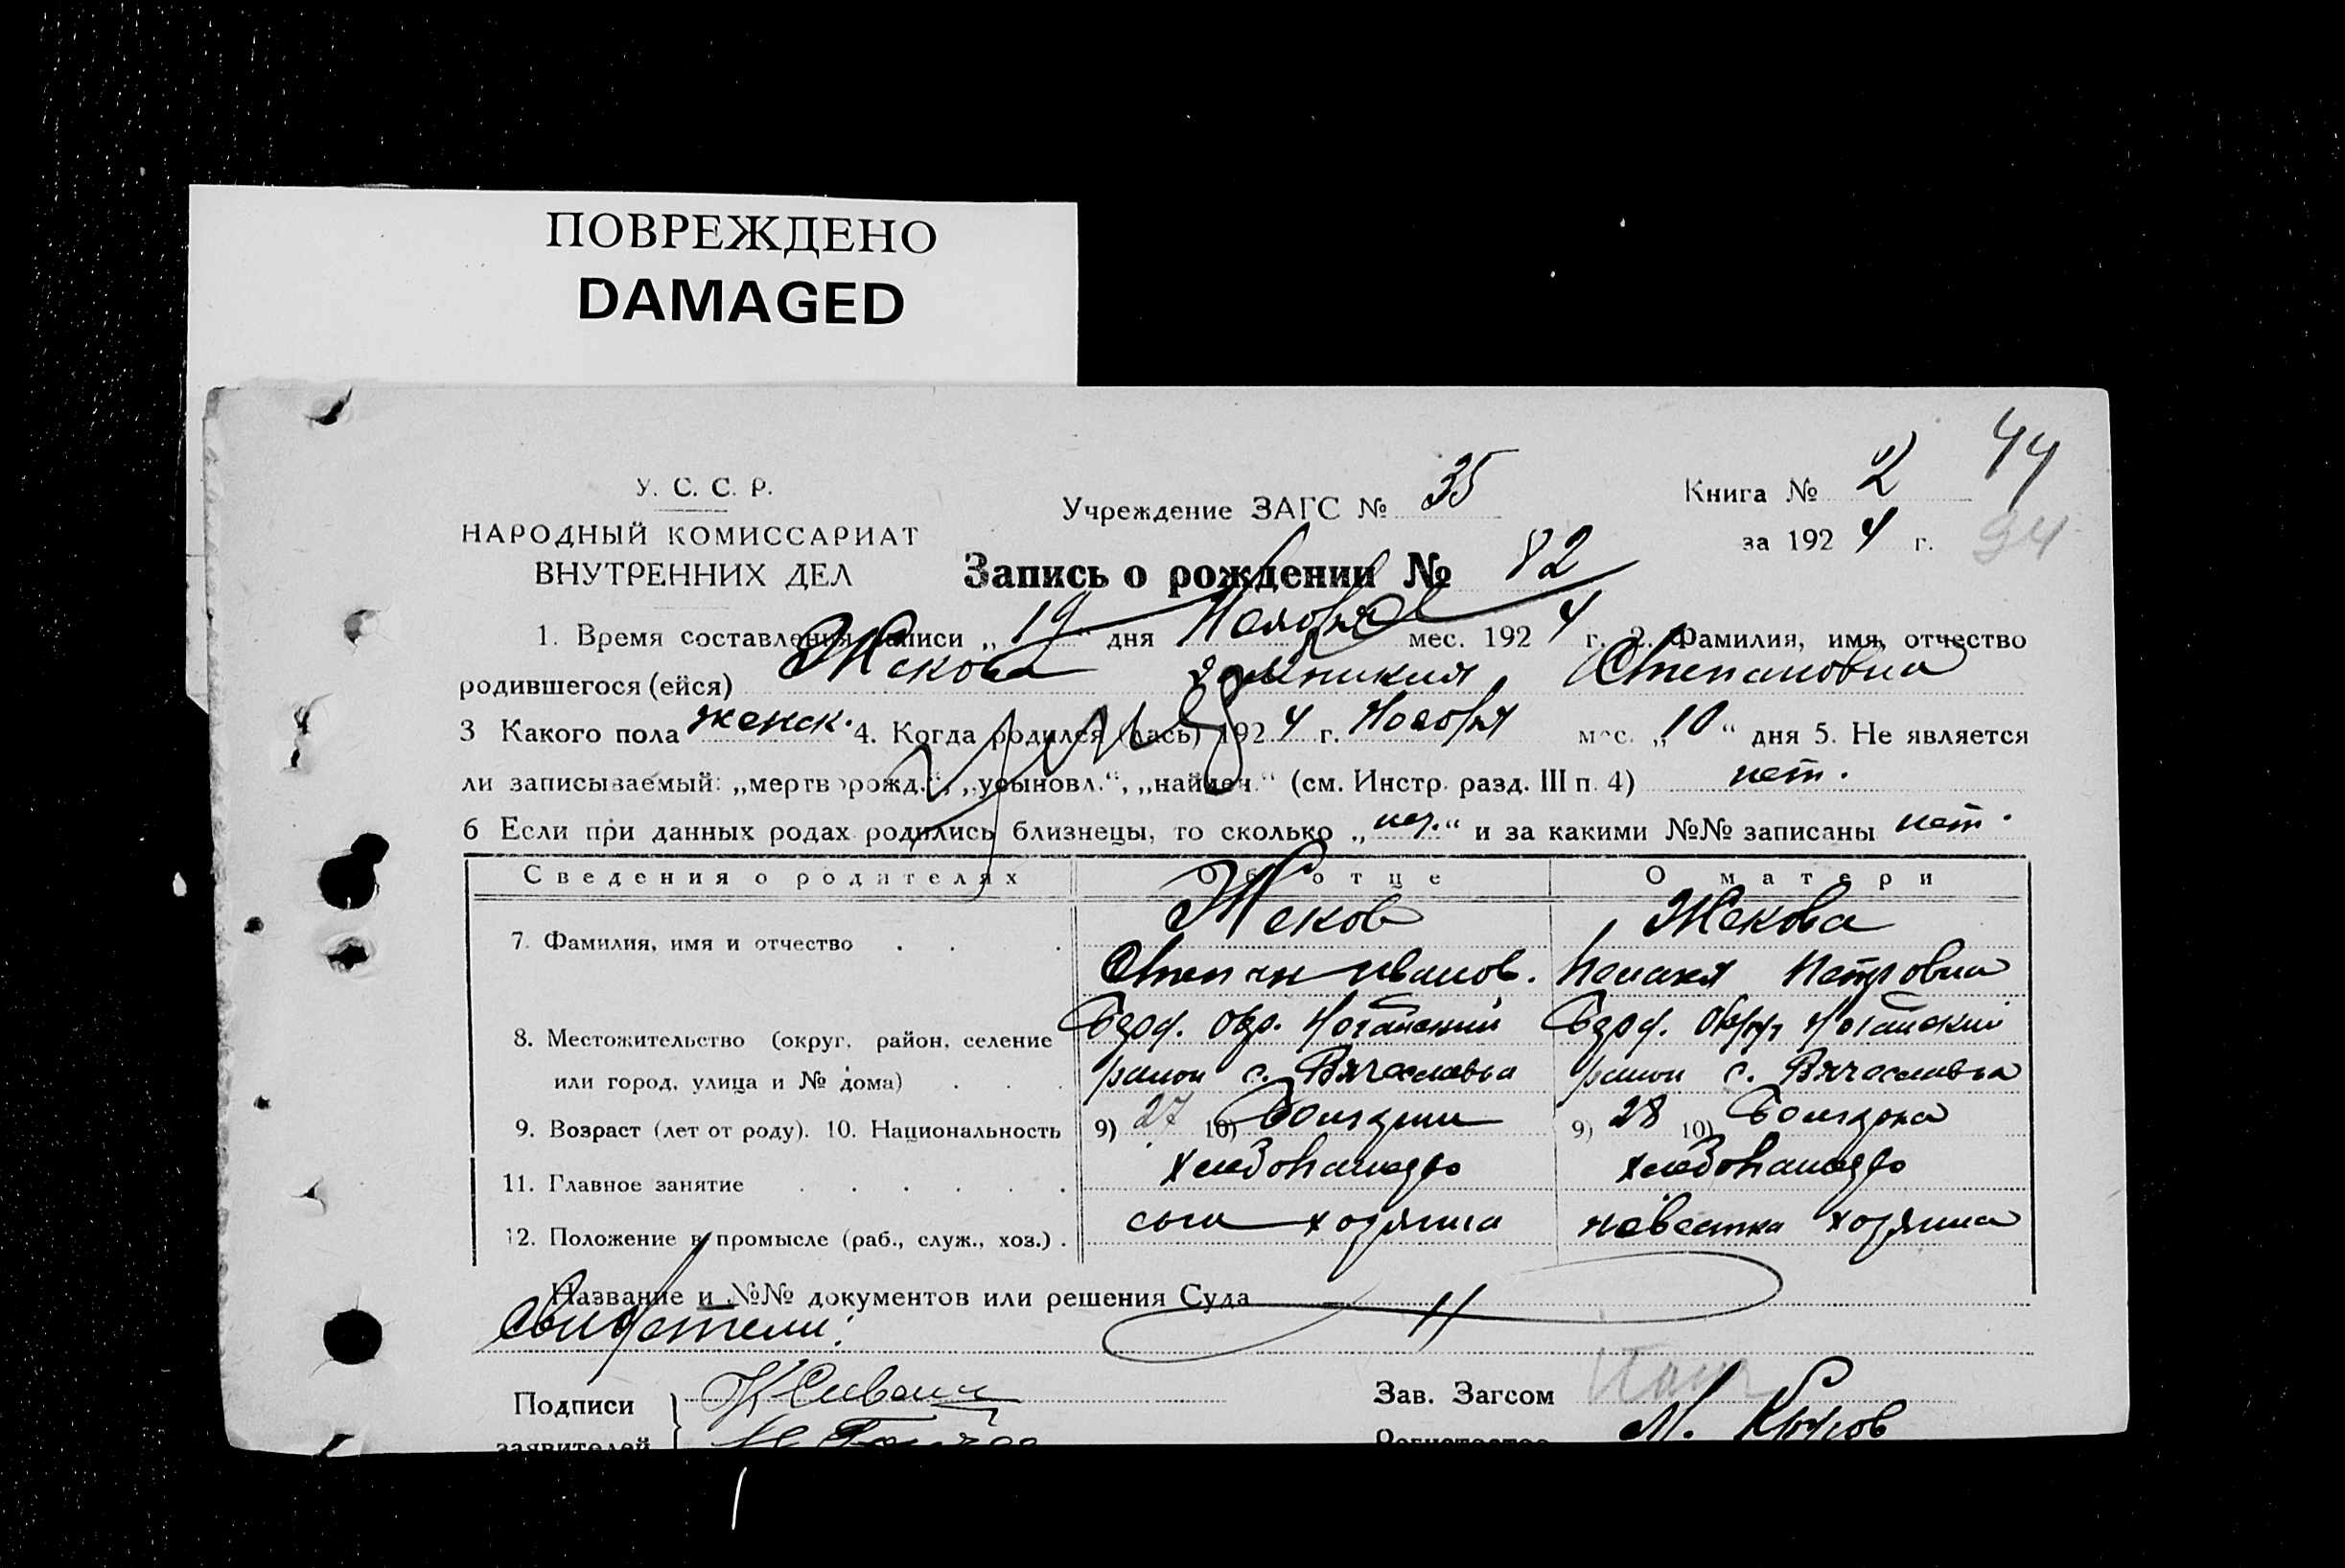 ПОВРЕЖДЕНО
DAMAGED
44
У. С. С. Р.
НАРОДНЫЙ КОМИССАРИАТ
ВНУТРЕННИХ ДЕЛ
Учреждение ЗАГС № 35
Книга № 2
за 1924 г.
34
Запись о рождении № 82
1. Время составления записи „19“ дня Ноября мес. 1924 г. 2. Фамилия, имя, отчество
родившегося (ейся) Жекова Степановна
3 Какого пола женск. 4. Когда родился (лась) 1924 г. Ноября мес. „10“ дня 5. Не является
ли записываемый: „мертворожд.“, „усыновл.“, „найден.“ (см. Инстр. разд. III п. 4) нет.
6 Если при данных родах родились близнецы, то сколько „нет.“ и за какими №№ записаны нет.
Сведения о родителях Об отце О матери
7. Фамилия, имя и отчество Жеков Жекова
Степан Иванов. Петровна
8. Местожительство (округ, район, селение Бзрд. окр. Ногайский Бзрд. Округ Ногайский
или город, улица и № дома) район с. Вячеславка район с. Вячеславка
9. Возраст (лет от роду). 10. Национальность 9) 27 10) 9) 28 10)
11. Главное занятие хлебопашедво хлебопашедво
12. Положение в промысле (раб., служ., хоз.) сын хозяина невестка хозяина
Название и №№ документов или решения Суда
Свидетели:
Подписи
заявителей
Зав. Загсом
М.